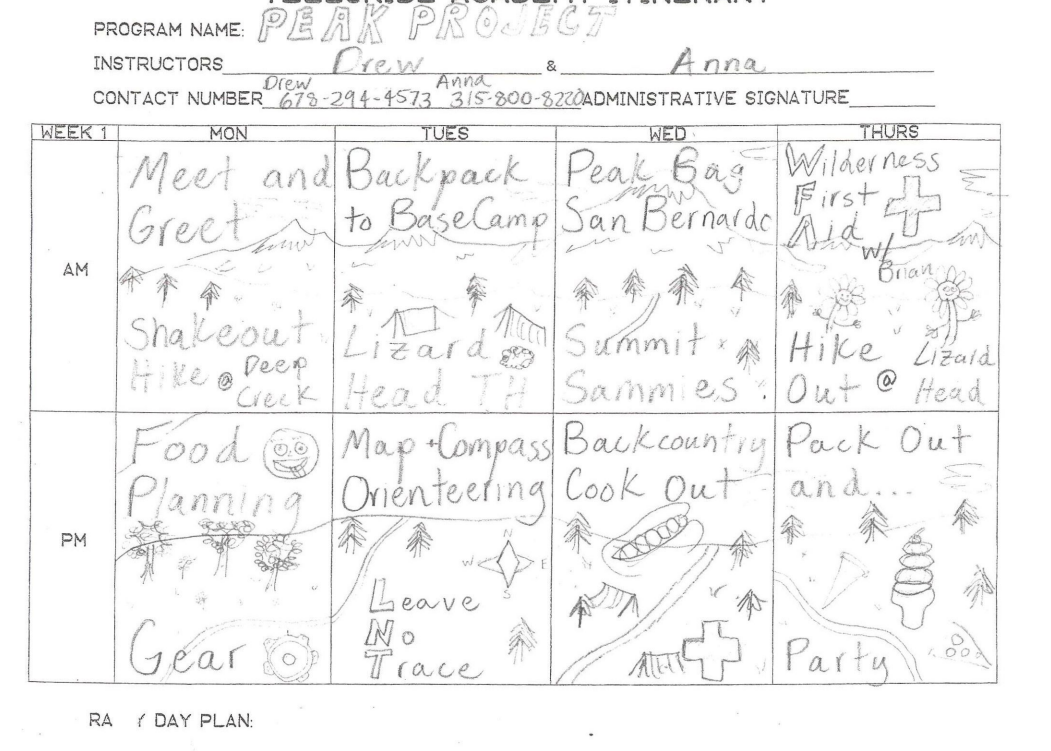 PEAK PROJECT
PROGRAM NAME:
INSTRUCTORS Drew & Anna
Drew Anna
CONTACT NUMBER 678-294-4573 315-800-8220 ADMINISTRATIVE SIGNATURE
WEEK 1 MON TUES WED THURS
AM
Meet and
Greet
Shakeout
Hike @ Deep
Creek
Backpack
to BaseCamp
Lizard
Head TH
Peak Bag
San Bernardo
Summit
Sammies
Wilderness
First
Aid
w/
Brian
Hike Lizard
Out @ Head
PM
Food
Planning
Gear
Map + Compass
Orienteering
N
W E
S
Leave
No
Trace
Backcountry
Cook Out
Pack Out
and...
Party
DAY PLAN: